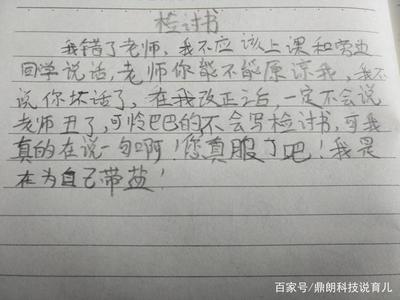 检讨书
我错了老师，我不应该上课和旁边
同学说话，老师你能不能原谅我，我不
说你坏话了，在我改正之后，一定不会说
老师丑了，可怜巴巴的不会写检讨书，可我
真的在说一句啊！您真服了吧！我是
在为自己带盐！
百家号/鼎朗科技说育儿